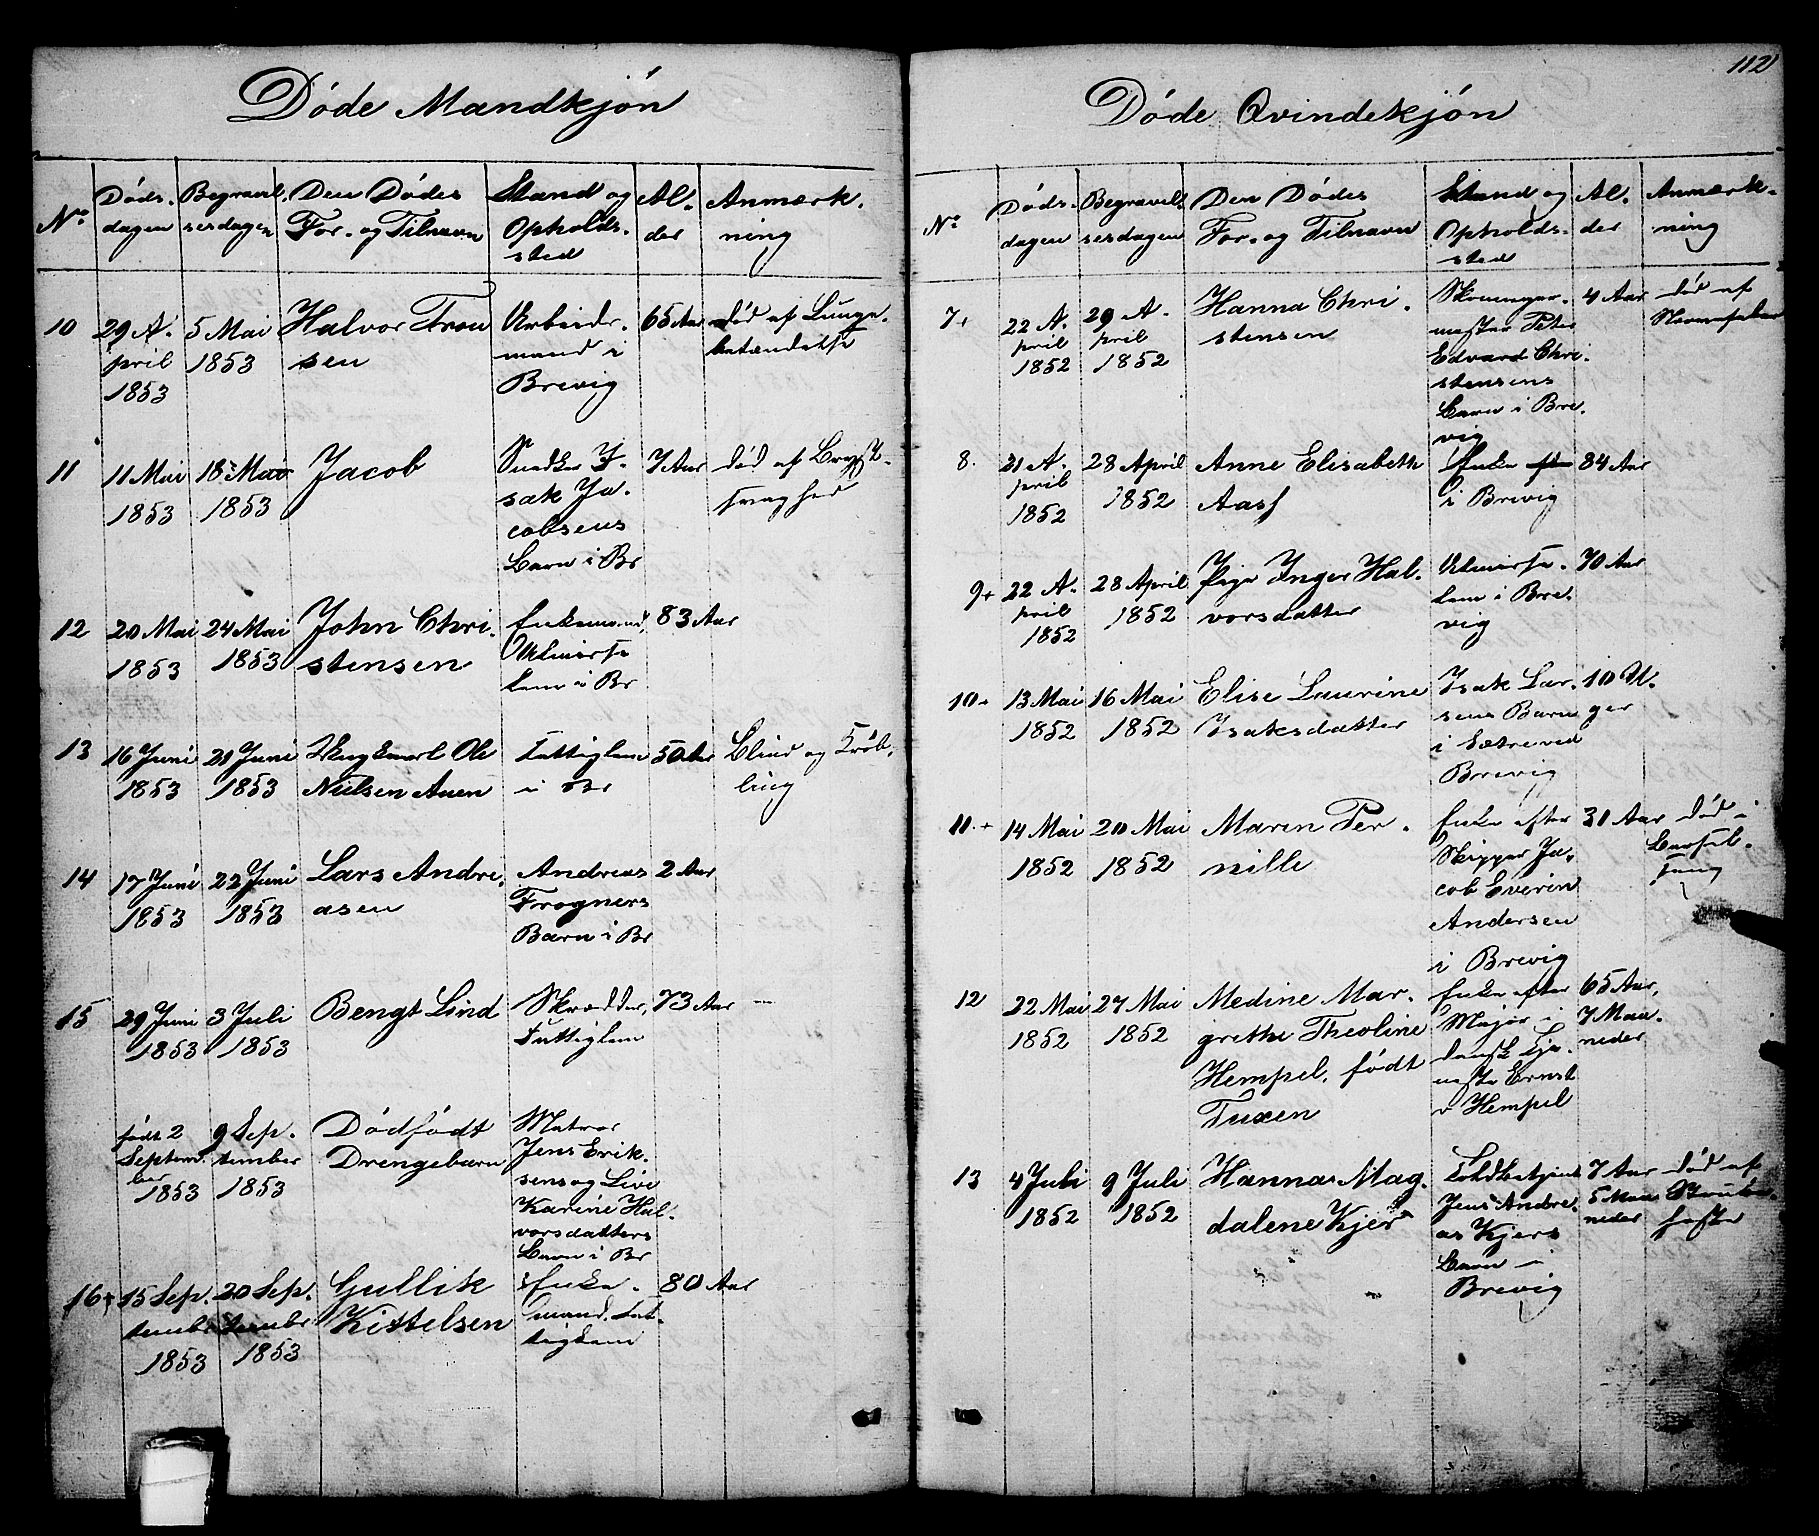 Døde Mandkjön
No
Døds-
dagen
Begravel-
sesdagen
Den Dødes
For- og Tilnavn
Stand og
Opholds-
sted
Al-
der
Anmærk-
ning
10
29 A-
pril
1853
5 Mai
1853
Halvor Tron
sen
Arbeids-
mand i
Brevig
65 Aar
død af Lunge-
betændelse
11
11 Mai
1853
18 Mai
1853
Jacob
Snedker I-
sak Ja-
cobsens
Barn i Br
7 Aar
død af Bryst-
svaghed
12
20 Mai
1853
24 Mai
1853
John Chri-
stensen
Enkemand,
Almisse
lem i Br
83 Aar
13
16 Juni
1853
21 Juni
1853
Ole
Nielsen Auen
Fattiglem
i Br
50 Aar
Blind og Krøb-
ling
14
17 Juni
1853
22 Juni
1853
Lars Andre-
asen
Andreas
Frogners
Barn i Br
2 Aar
15
29 Juni
1853
3 Juli
1853
Bengt Lind
Skrædder,
Fattiglem
73 Aar
født 2
Septem-
ber
1853
9 Sep-
tember
1853
Dødfødt
Drengebarn
Matros
Jens Erik-
sens og Live
Karine Hal-
vorsdatters
Barn i Br
16+
15 Sep-
tember
1853
20 Sep-
tembr
1853
Gullik
Kittelsen
Enke-
mand. Fat-
tiglem
80 Aar
112
Døde Qvindekjön
No
Døds-
dagen
Begravel-
sesdagen
Den Dødes
For- og Tilnavn
Stand og
Opholds-
sted
Al-
der
Anmærk-
ning
7+
22 A-
pril
1852
29 A-
pril
1852
Hanna Chri-
stensen
mester Peter
Edvard Chri-
stensens
Barn i Bre-
vig
4 Aar
død af
Nervefeber
8.
21 A-
pril
1852
28 April
1852
Anne Elisabeth
Aass
Enke
i Brevig
84 Aar
9+
22 A-
pril
1852
28 April
1852
Pige Inger Hal-
vorsdatter
Almisse-
lem i Bre-
vig
70 Aar
10+
13 Mai
1852
16 Mai
1852
Elise Laurine
Isaksdatter
Isak Lar-
sens Barn
i Sætre ved
Brevig
10 U-
ger
11.+
14 Mai
1852
20 Mai
1852
Maren Per-
nille
Enke efter
Skipper Ja-
cob Everin
Andersen
i Brevig
31 Aar
død i
Barsel-
seng
12
22 Mai
1852
27 Mai
1852
Medine Mar-
grethe Theoline
Hempel, født
Tuxen
Enke efter
Major i
dansk Tje-
neste Ernst
v Hempel
65 Aar,
7 Maa-
neder
13
4 Juli
1852
9 Juli
1852
Hanna Mag-
dalene Kjer
Toldbetjent
Jens Andre-
as Kjers
Barn i
Brevig
7 Aar
5 Maa-
neder
død af
Strube-
hoste